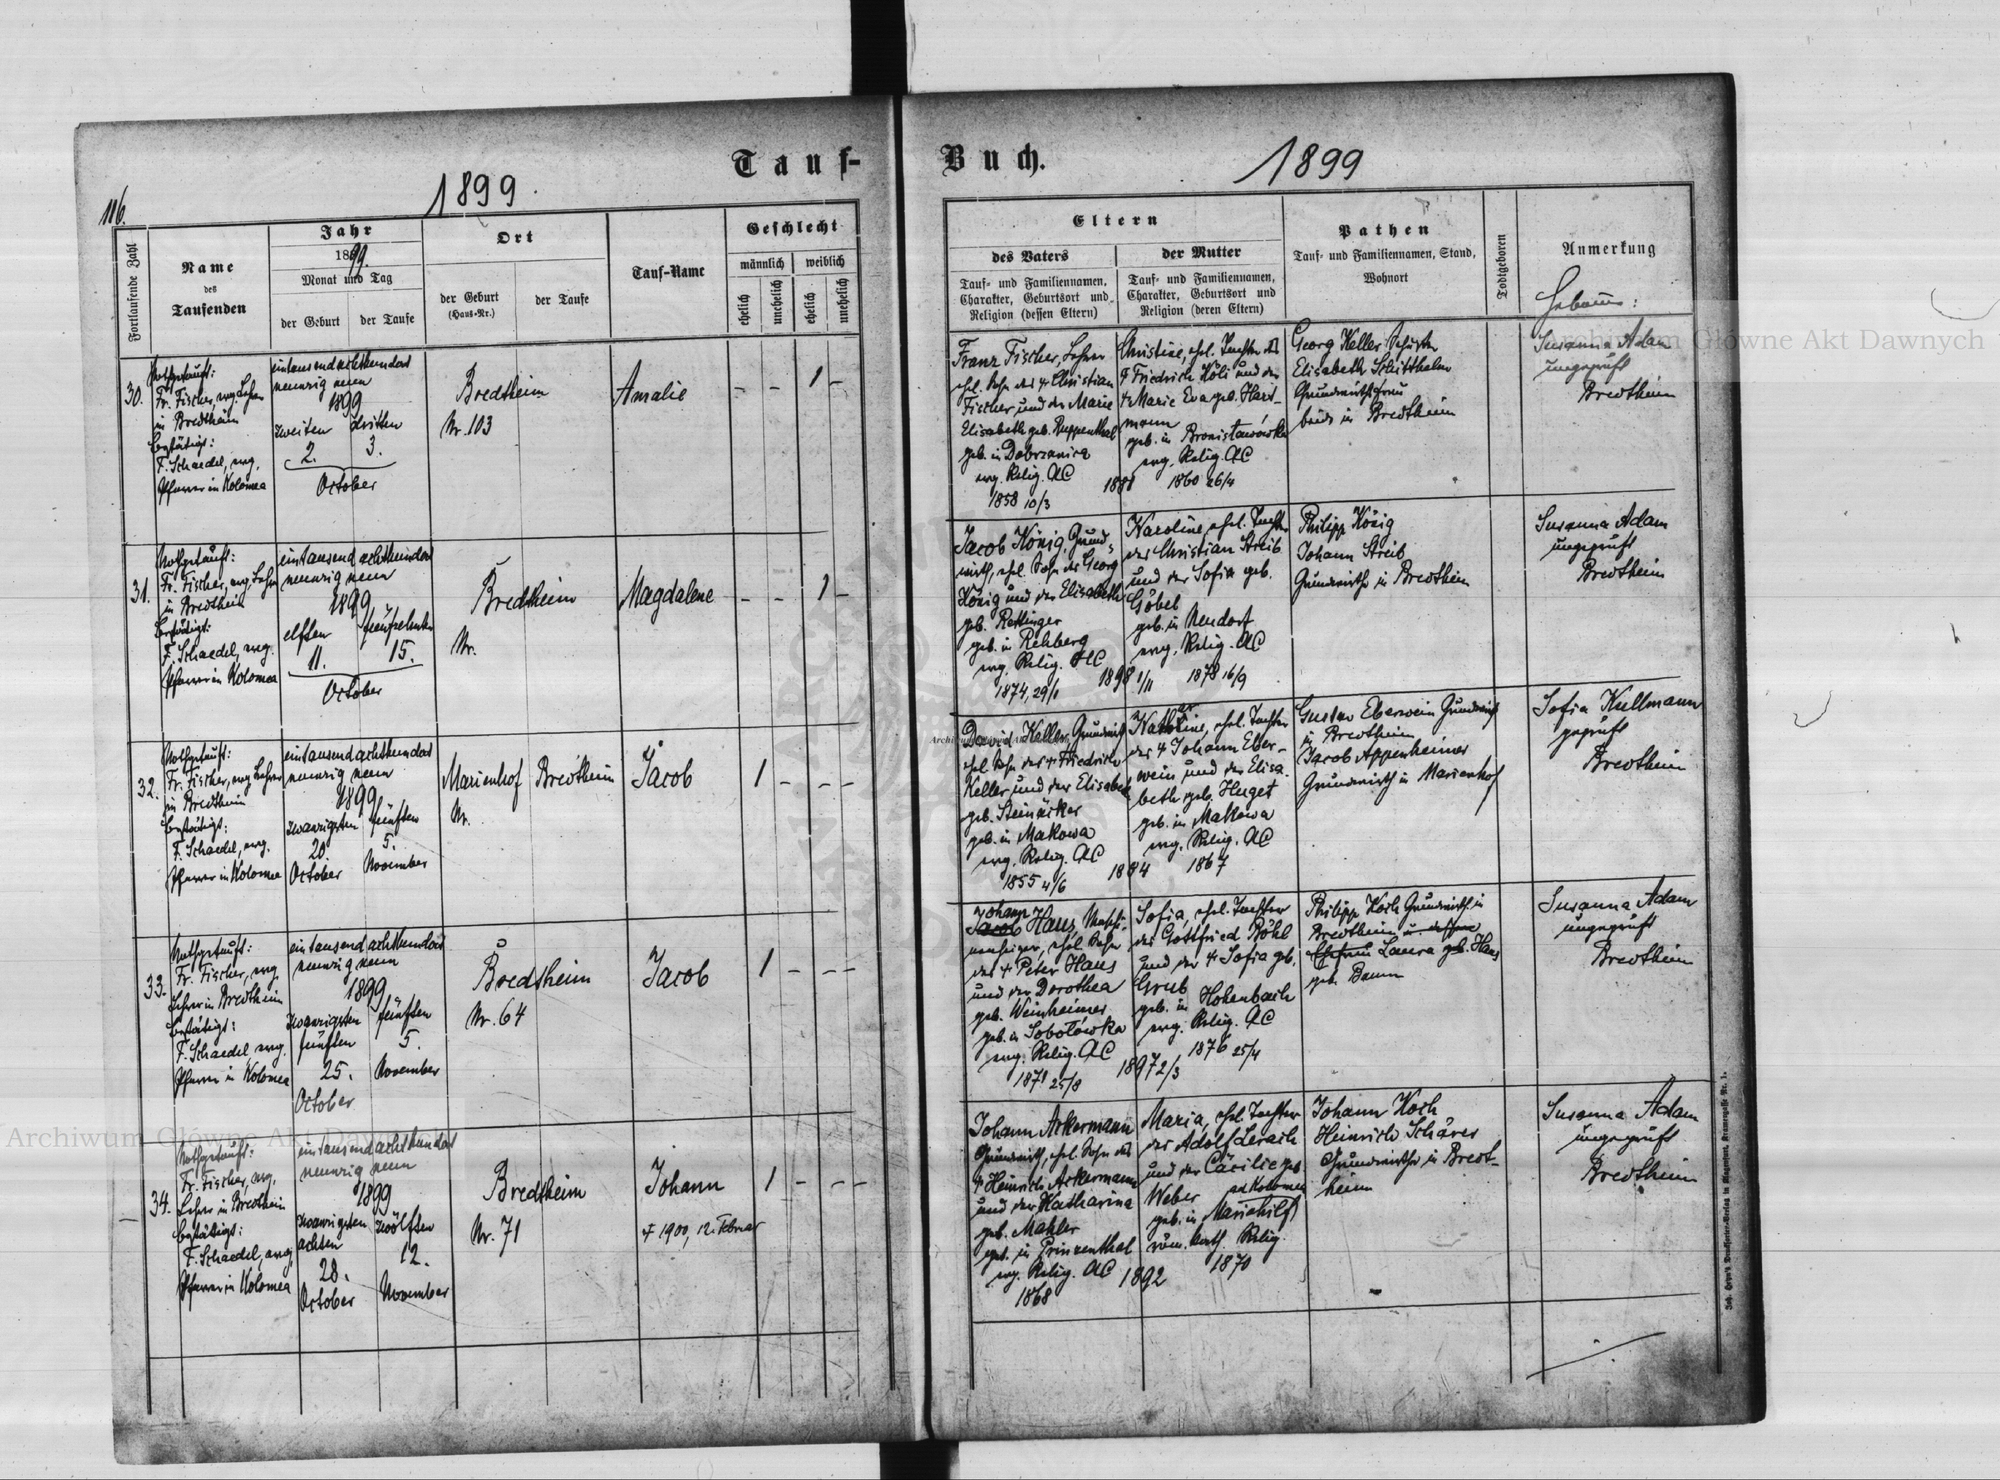 Tauf-
Buch.
116.
1899
1899
Fortlaufende Zahl
Name
des
Taufenden
Jahr
1899
Monat und Tag
der Geburt
der Taufe
Ort
der Geburt
(Haus-Nr.)
der Taufe
Tauf-Name
Geschlecht
männlich
weiblich
ehelich
unehelich
ehelich
unehelich
Eltern
des Vaters
Tauf- und Familiennamen,
Charakter, Geburtsort und
Religion (dessen Eltern)
der Mutter
Tauf- und Familiennamen,
Charakter, Geburtsort und
Religion (deren Eltern)
Pathen
Tauf- und Familiennamen, Stand,
Wohnort
Todtgeboren
Anmerkung
30.
Nothgetauft:
Fr. Fischer, evg. Lehrer
in Bredtheim
bestätigt:
F. Schaedel, evg.
Pfarrer in Kolomea
eintausendachthundert
neunzig neun
1899
zweiten dritten
2. 3.
October
Bredtheim
Nr. 103
Amalie
- - 1 -
Franz Fischer, Lehrer
ehel. Sohn des + Christian
Fischer und der Marie
Elisabeth geb. Ruppenthal
geb. in Dobrzanica
evg. Relig. AC
1858 10/3
1881
Christine, ehel. Tochter des
+ Friedrich Köli und der
+ Marie Eva geb. Hart-
mann
geb. in Bronisławówka
evg. Relig. AC
1860 26/4
Georg Keller
Elisabeth Schitthelm
Grundwirthsfrau
beide in Bredtheim
Susanna Adam
ungeprüft
Bredtheim
31.
Nothgetauft:
Fr. Fischer, evg. Lehrer
in Bredtheim
bestätigt:
F. Schaedel, evg.
Pfarrer in Kolomea
eintausend achthundert
neunzig neun
1899
elften fünfzehnten
11. 15.
October
Bredtheim
Nr.
Magdalene
- - 1 -
Jacob König, Grund-
wirth, ehel. Sohn des Georg
König und der Elisabeth
geb. Rettinger
geb. in Rehberg
evg. Relig. HC
1874, 29/1
1898 1/11
Karoline, ehel. Tochter
des Christian Streib
und der Sofia geb.
Göbel
geb. in Neudorf
evg. Relig. AC
1878 16/9
Philipp König
Johann Streib
Grundwirthe in Bredtheim
Susanna Adam
ungeprüft
Bredtheim
32.
Nothgetauft:
Fr. Fischer, evg Lehrer
in Bredtheim
bestätigt:
F. Schaedel, evg.
Pfarrer in Kolomea
eintausendachthundert
neunzig neun
1899
zwanzigsten fünften
20 5.
October November
Marienhof
Nr.
Bredtheim
Jacob
1 - - -
David Keller, Grundwirth
ehel. Sohn des + Friedrich
Keller und der Elisabeth
geb. Steinärker
geb. in Makowa
evg. Relig. AC
1855 4/6
1884
Katharine, ehel. Tochter
des + Johann Eber-
wein und der Elisa-
beth geb. Huget
geb. in Makowa
evg. Relig. AC
1867
Gustav Eberwein Grundwirth
in Bredtheim
Jacob Appenheimer
Grundwirth in Marienhof
Sofia Kullmann
geprüft
Bredtheim
33.
Nothgetauft:
Fr. Fischer, evg.
Lehrer in Bredtheim
bestätigt:
F. Schaedel, evg.
Pfarrer in Kolomea
eintausendachthundert
neunzig neun
1899
zwanzigsten fünften
fünften 5.
25. November
October
Bredtheim
Nr. 64
Jacob
1 - - -
Johann
Jacob Haus,
ehel Sohn
des + Peter Haus
und der Dorothea
geb. Weinheimer
geb. in Sobotówka
evg. Relig. AC
1871 25/8
1897 2/3
Sofia, ehel. Tochter
des Gottfried Röhl
und der + Sofia geb.
Grub
geb. in Hohenbach
evg. Relig. AC
1876 25/4
Philipp Koch Grundwirth in
Bredtheim u. dessen
Ehefrau Laura geb. Haus
geb. Baum
Susanna Adam
ungeprüft
Bredtheim
34.
Nothgetauft:
Fr. Fischer, evg.
Lehrer in Bredtheim
bestätigt:
F. Schaedel, evg.
Pfarrer in Kolomea
eintausendachthundert
neunzig neun
1899
zwanzigsten zwölften
achten 12.
28. November
October
Bredtheim
Nr. 71
Johann
+ 1900, 12. Februar
1 - - -
Johann Ackermann
Grundwirth, ehel. Sohn des
+ Heinrich Ackermann
und der Katharina
geb. Mahler
geb. in Prinzenthal
evg. Relig. AC
1868
1892
Maria, ehel. Tochter
des Adolf Lerach
und der Cäcilie geb.
Weber ad Kolomea
geb. in Mariahilf
röm. kath Relig.
1870
Johann Koch
Heinrich Schärer
Grundwirthe in Bredt-
heim
Susanna Adam
ungeprüft
Bredtheim
Archiwum Główne Akt Dawnych
Archiwum Główne Akt Dawnych